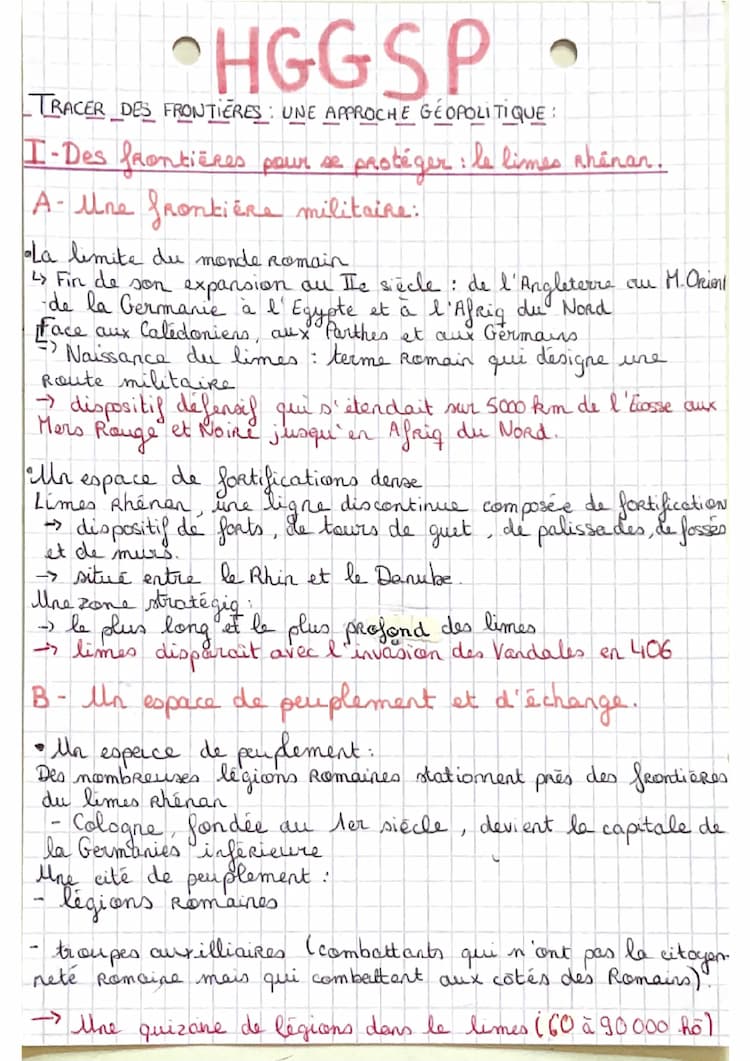 HGGSP
TRACER DES FRONTIÈRES : UNE APPROCHE GÉOPOLITIQUE :
I - Des frontières pour se protéger : le limes rhénan.
A - Une frontière militaire :
• La limite du monde romain
↳ Fin de son expansion au IIe siècle : de l'Angleterre au M. Orient
- de la Germanie à l'Egypte et à l'Afriq du Nord
Face aux Calédoniens, aux Parthes et aux Germains
=> Naissance du limes : terme romain qui désigne une
route militaire
→ dispositif défensif qui s'étendait sur 5000 km de l'Écosse aux
Mers Rouge et Noire jusqu'en Afriq du Nord.
• Un espace de fortifications dense
Limes rhénan, une ligne discontinue composée de fortification
→ dispositif de forts, de tours de guet, de palissades, de fossés
et de murs.
→ situé entre le Rhin et le Danube.
Une zone stratégiq :
→ le plus long et le plus profond des limes
→ limes disparait avec l'invasion des Vandales en 406
B - Un espace de peuplement et d'échange.
• Un espece de peuplement :
Des nombreuses légions romaines stationnent près des frontières
du limes rhénan
- Cologne, fondée au 1er siècle, devient la capitale de
la Germanies inférieure
Une cité de peuplement :
- légions romaines
- troupes auxilliaires (combattants qui n'ont pas la citoyen-
neté romaine mais qui combattent aux côtés des Romains).
→ Une quizane de légions dans le limes (60 à 90 000 hô)